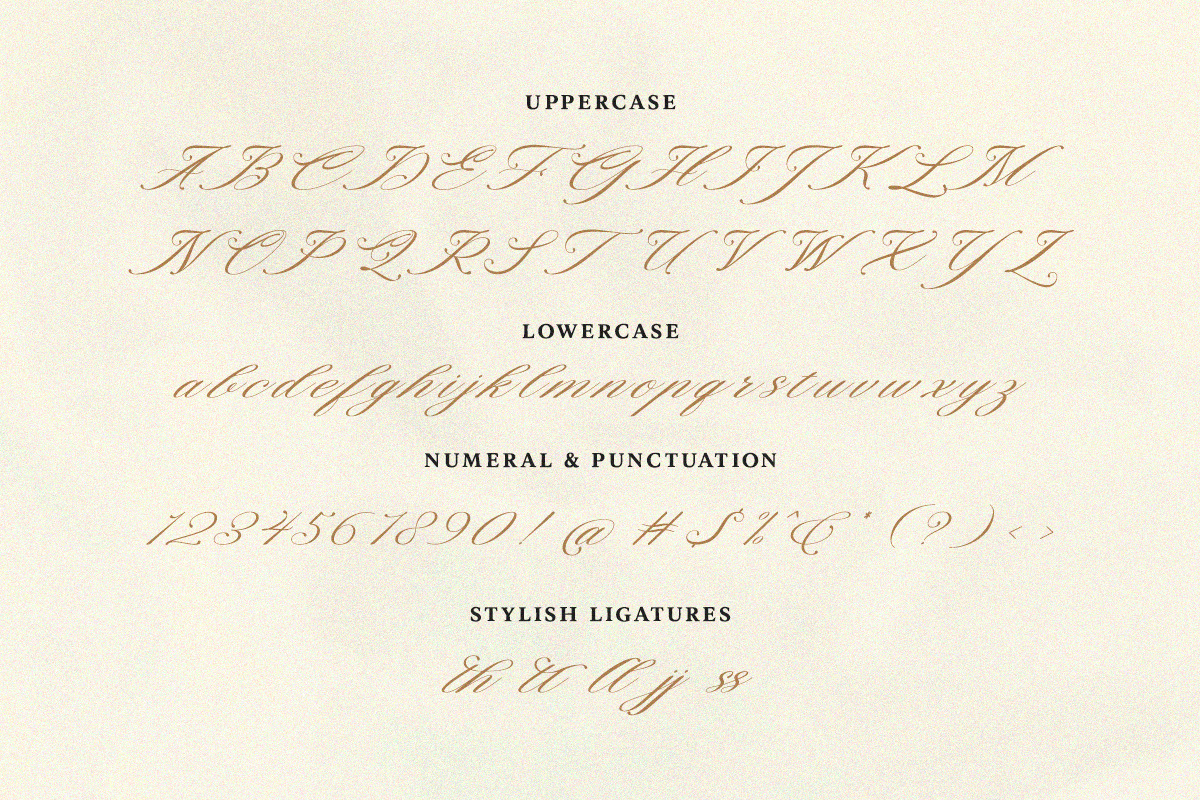 UPPERCASE
A B C D E F G H I J K L M
N O P Q R S T U V W X Y Z
LOWERCASE
a b c d e f g h i j k l m n o p q r s t u v w x y z
NUMERAL & PUNCTUATION
1 2 3 4 5 6 7 8 9 0 ! @ # $ % ^ & * ( ? ) < >
STYLISH LIGATURES
th tt ll jj ss